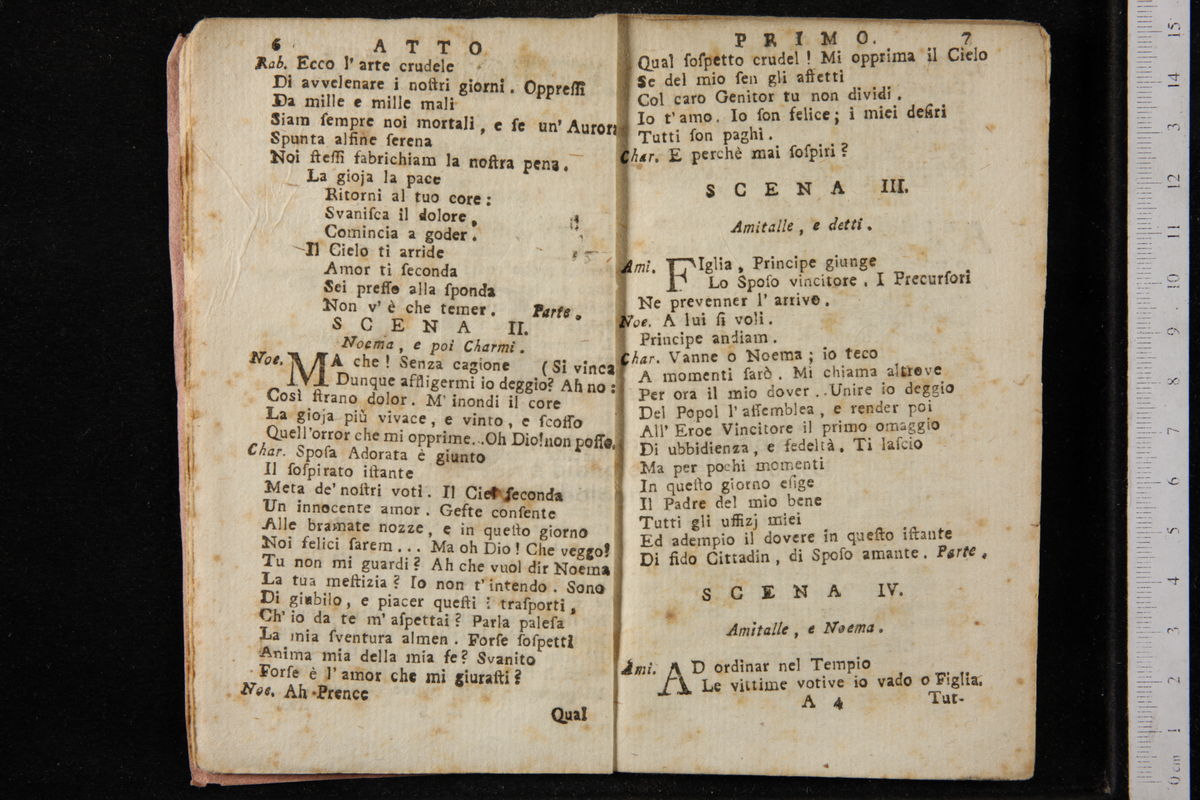 6 ATTO
Rab. Ecco l'arte crudele
Di avvelenare i noſtri giorni. Oppreſſi
Da mille e mille mali
Siam ſempre noi mortali, e ſe un' Aurora
Spunta alfine ſerena
Noi ſteſſi fabrichiam la noſtra pena.
La gioja la pace
Ritorni al tuo core:
Svaniſca il dolore,
Comincia a goder.
Il Cielo ti arride
Amor ti ſeconda
Sei preſſo alla ſponda
Non v'è che temer. Parte.
SCENA II.
Noema, e poi Charmi.
Noe. MA che! Senza cagione (Si vinca
Dunque affligermi io deggio? Ah no:
Così ſtrano dolor. M'inondi il core
La gioja più vivace, e vinto, e ſcoſſo
Quell'orror che mi opprime...Oh Dio!non poſſo.
Char. Spoſa Adorata è giunto
Il ſoſpirato iſtante
Meta de' noſtri voti. Il Ciel ſeconda
Un innocente amor. Gefte conſente
Alle bramate nozze, e in queſto giorno
Noi felici ſarem... Ma oh Dio! Che veggo?
Tu non mi guardi? Ah che vuol dir Noema
La tua meſtizia? Io non t'intendo. Sono
Di giubilo, e piacer queſti i traſporti,
Ch'io da te m'aſpettai? Parla paleſa
La mia ſventura almen. Forſe ſoſpetti
Anima mia della mia fe? Svanito
Forſe è l'amor che mi giuraſti?
Noe. Ah Prence
Qual
PRIMO. 7
Qual ſoſpetto crudel! Mi opprima il Cielo
Se del mio ſen gli affetti
Col caro Genitor tu non dividi.
Io t'amo. Io ſon felice; i miei deſiri
Tutti ſon paghi.
Char. E perchè mai ſoſpiri?
SCENA III.
Amitalle, e detti.
Ami. FIglia, Principe giunge
Lo Spoſo vincitore. I Precurſori
Ne prevenner l'arrivo.
Noe. A lui ſi voli.
Principe andiam.
Char. Vanne o Noema; io teco
A momenti ſarò. Mi chiama altrove
Per ora il mio dover.. Unire io deggio
Del Popol l'aſſemblea, e render poi
All' Eroe Vincitore il primo omaggio
Di ubbidienza, e fedeltà. Ti laſcio
Ma per pochi momenti
In queſto giorno eſige
Il Padre del mio bene
Tutti gli uffizj miei
Ed adempio il dovere in queſto iſtante
Di fido Cittadin, di Spoſo amante. Parte.
SCENA IV.
Amitalle, e Noema.
Ami. AD ordinar nel Tempio
Le vittime votive io vado o Figlia.
A 4 Tut-
0 cm 1 2 3 4 5 6 7 8 9 10 11 12 13 14 15